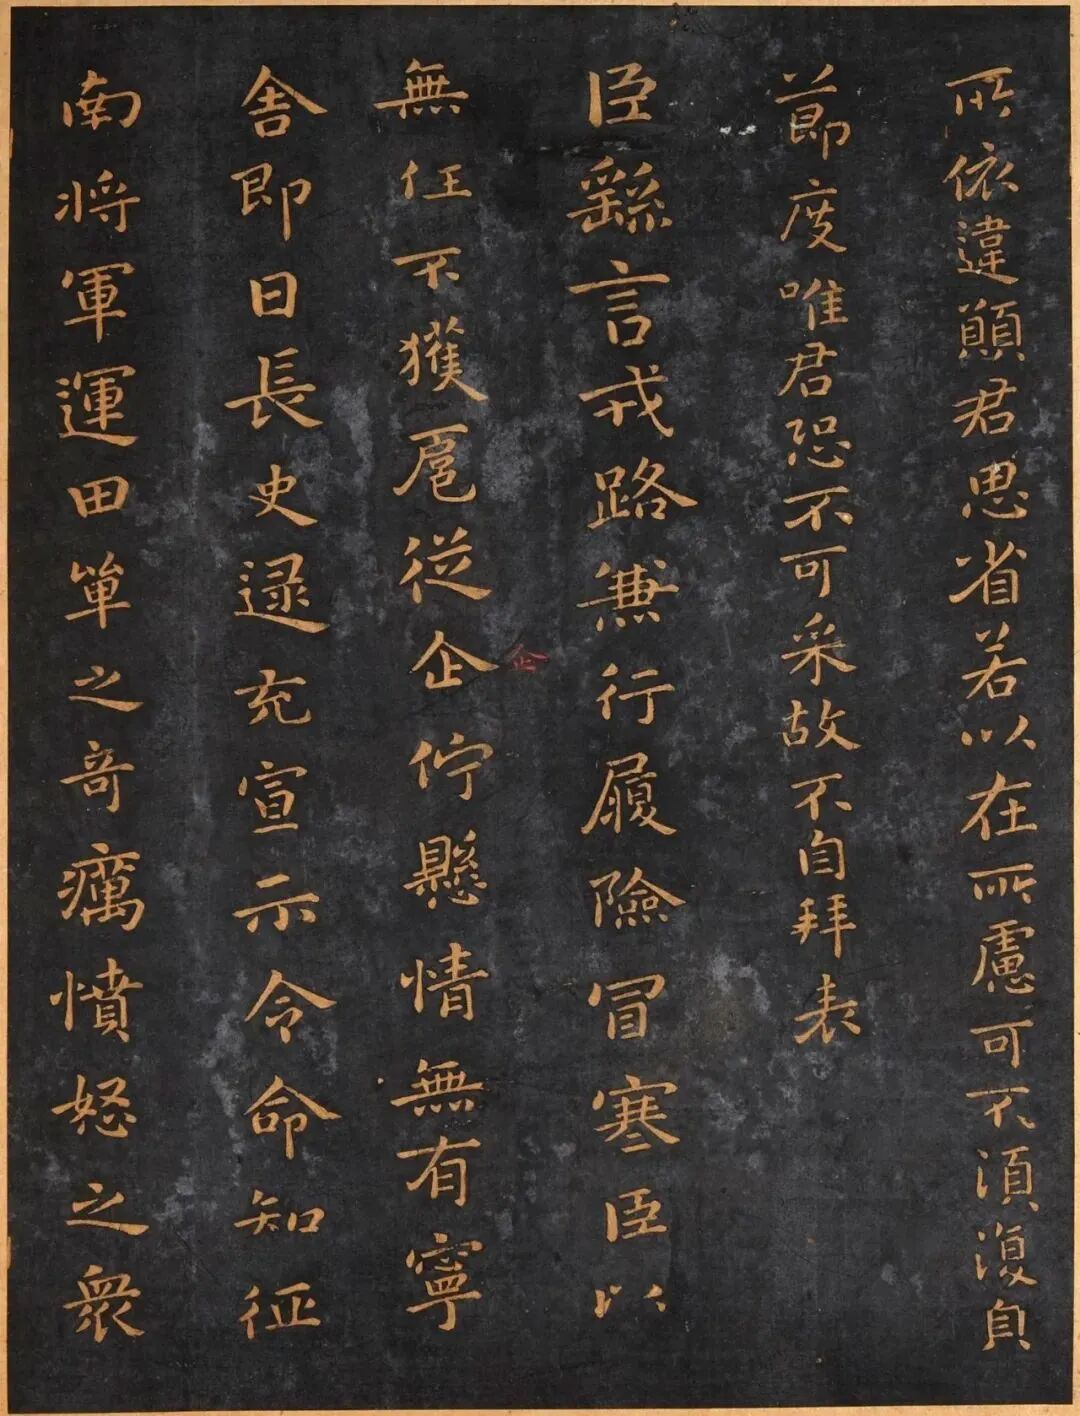 所依違願君思省若以在所慮可不須復自
節度唯君恐不可采故不自拜表
臣繇言戎路兼行履險冒寒臣以
無任不獲扈從企佇懸情無有寧
企
舍即日長史逯充宣示令命知征
南將軍運田單之奇癘憤怒之眾